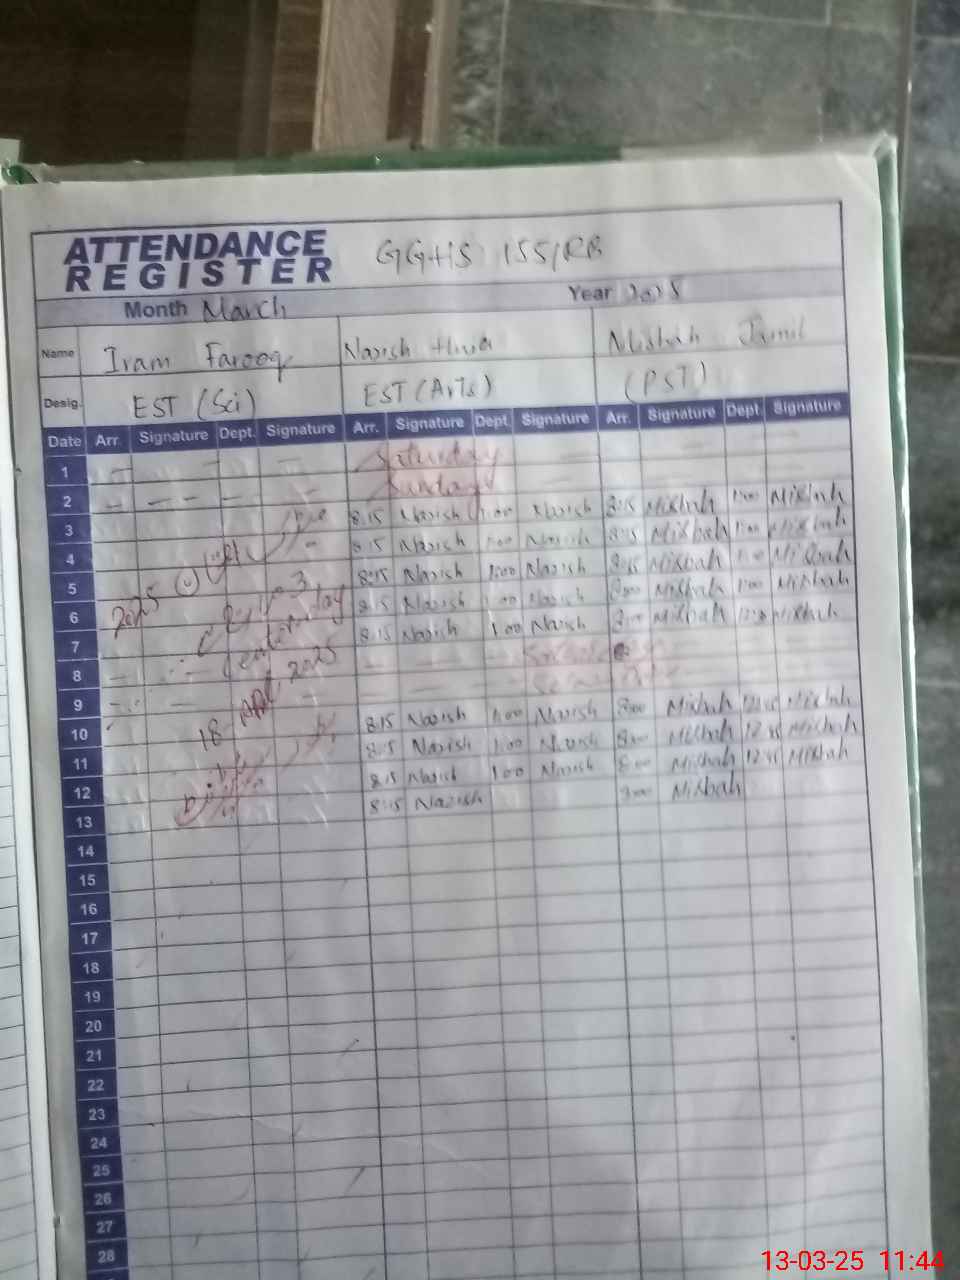 ATTENDANCE REGISTER GGHS 155/RB
Month March Year 2025
Name Iram Farooq Nazish Hina Misbah Jamil
Desig. EST (Sci) EST (Arts) (PST)
Date Arr. Signature Dept. Signature Arr. Signature Dept. Signature Arr. Signature Dept. Signature
1 Saturday
2 Sunday
3 8:15 Nazish 1:00 Nazish 8:15 Misbah 1:00 Misbah
4 8:15 Nazish 1:00 Nazish 8:15 Misbah 1:00 Misbah
5 8:15 Nazish 1:00 Nazish 8:15 Misbah 1:00 Misbah
6 2025 8:15 Nazish 1:00 Nazish 8:00 Misbah 1:00 Misbah
7 8:15 Nazish 1:00 Nazish 8:00 Misbah Misbah
8
9 18 April 2025
10 8:15 Nazish 1:00 Nazish 8:00 Misbah 12:45 Misbah
11 8:15 Nazish 1:00 Nazish 8:00 Misbah 12:45 Misbah
12 8:15 Nazish 1:00 Nazish 8:00 Misbah 12:45 Misbah
13 8:15 Nazish 8:00 Misbah
14
15
16
17
18
19
20
21
22
23
24
25
26
27
28
13-03-25 11:44